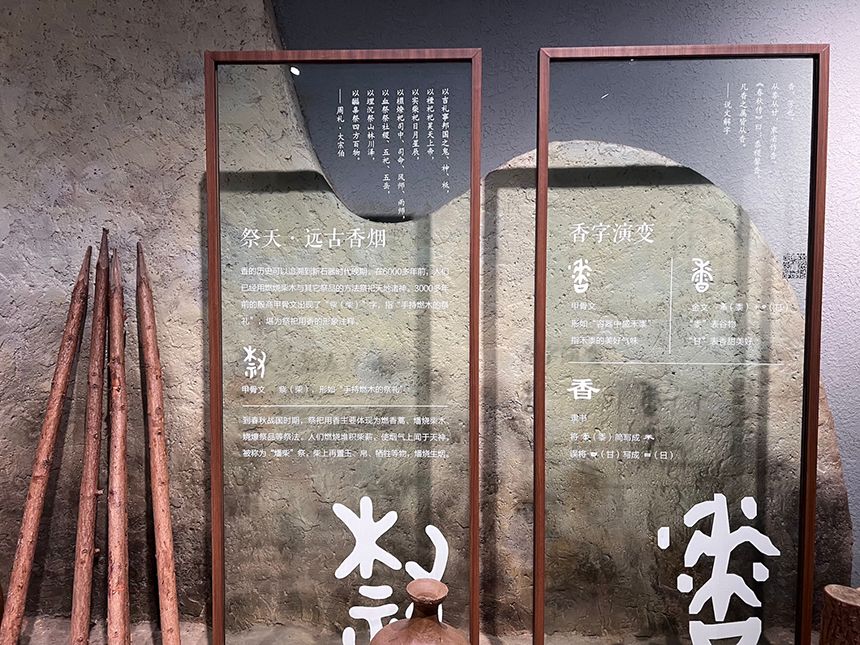 以吉礼事邦国之鬼、神、祇，
以禋祀祀昊天上帝，
以实柴祀日月星辰，
以槱燎祀司中、司命、风师、雨师，
以血祭祭社稷、五祀、五岳，
以埋沉祭山林川泽，
以疈辜祭四方百物。
——周礼·大宗伯
祭天·远古香烟
香的历史可以追溯到新石器时代晚期，在6000多年前，人们
已经用燃烧柴木与其它祭品的方法祭祀天地诸神。3000多年
前的殷商甲骨文出现了“祡（柴）”字，指“手持燃木的祭
礼”，堪为祭祀用香的形象注释。
甲骨文 祡（柴），形如“手持燃木的祭礼”
到春秋战国时期，祭祀用香主要体现为燃香蒿、燔烧柴木、
烧燎祭品等祭法。人们燃烧堆积柴薪，使烟气上闻于天神，
被称为“燔柴”祭，柴上再置玉、帛、牺牲等物，燔烧生烟。
香，芳也。
从黍从甘。
《春秋传》曰：黍稷馨香。
凡香之属皆从香。
——说文解字
香字演变
甲骨文
形如“容器中盛禾黍”
指禾黍的美好气味
金文
“黍”表谷物
“甘”表香甜美好
香
隶书
将（黍）简写成
误将（甘）写成（日）